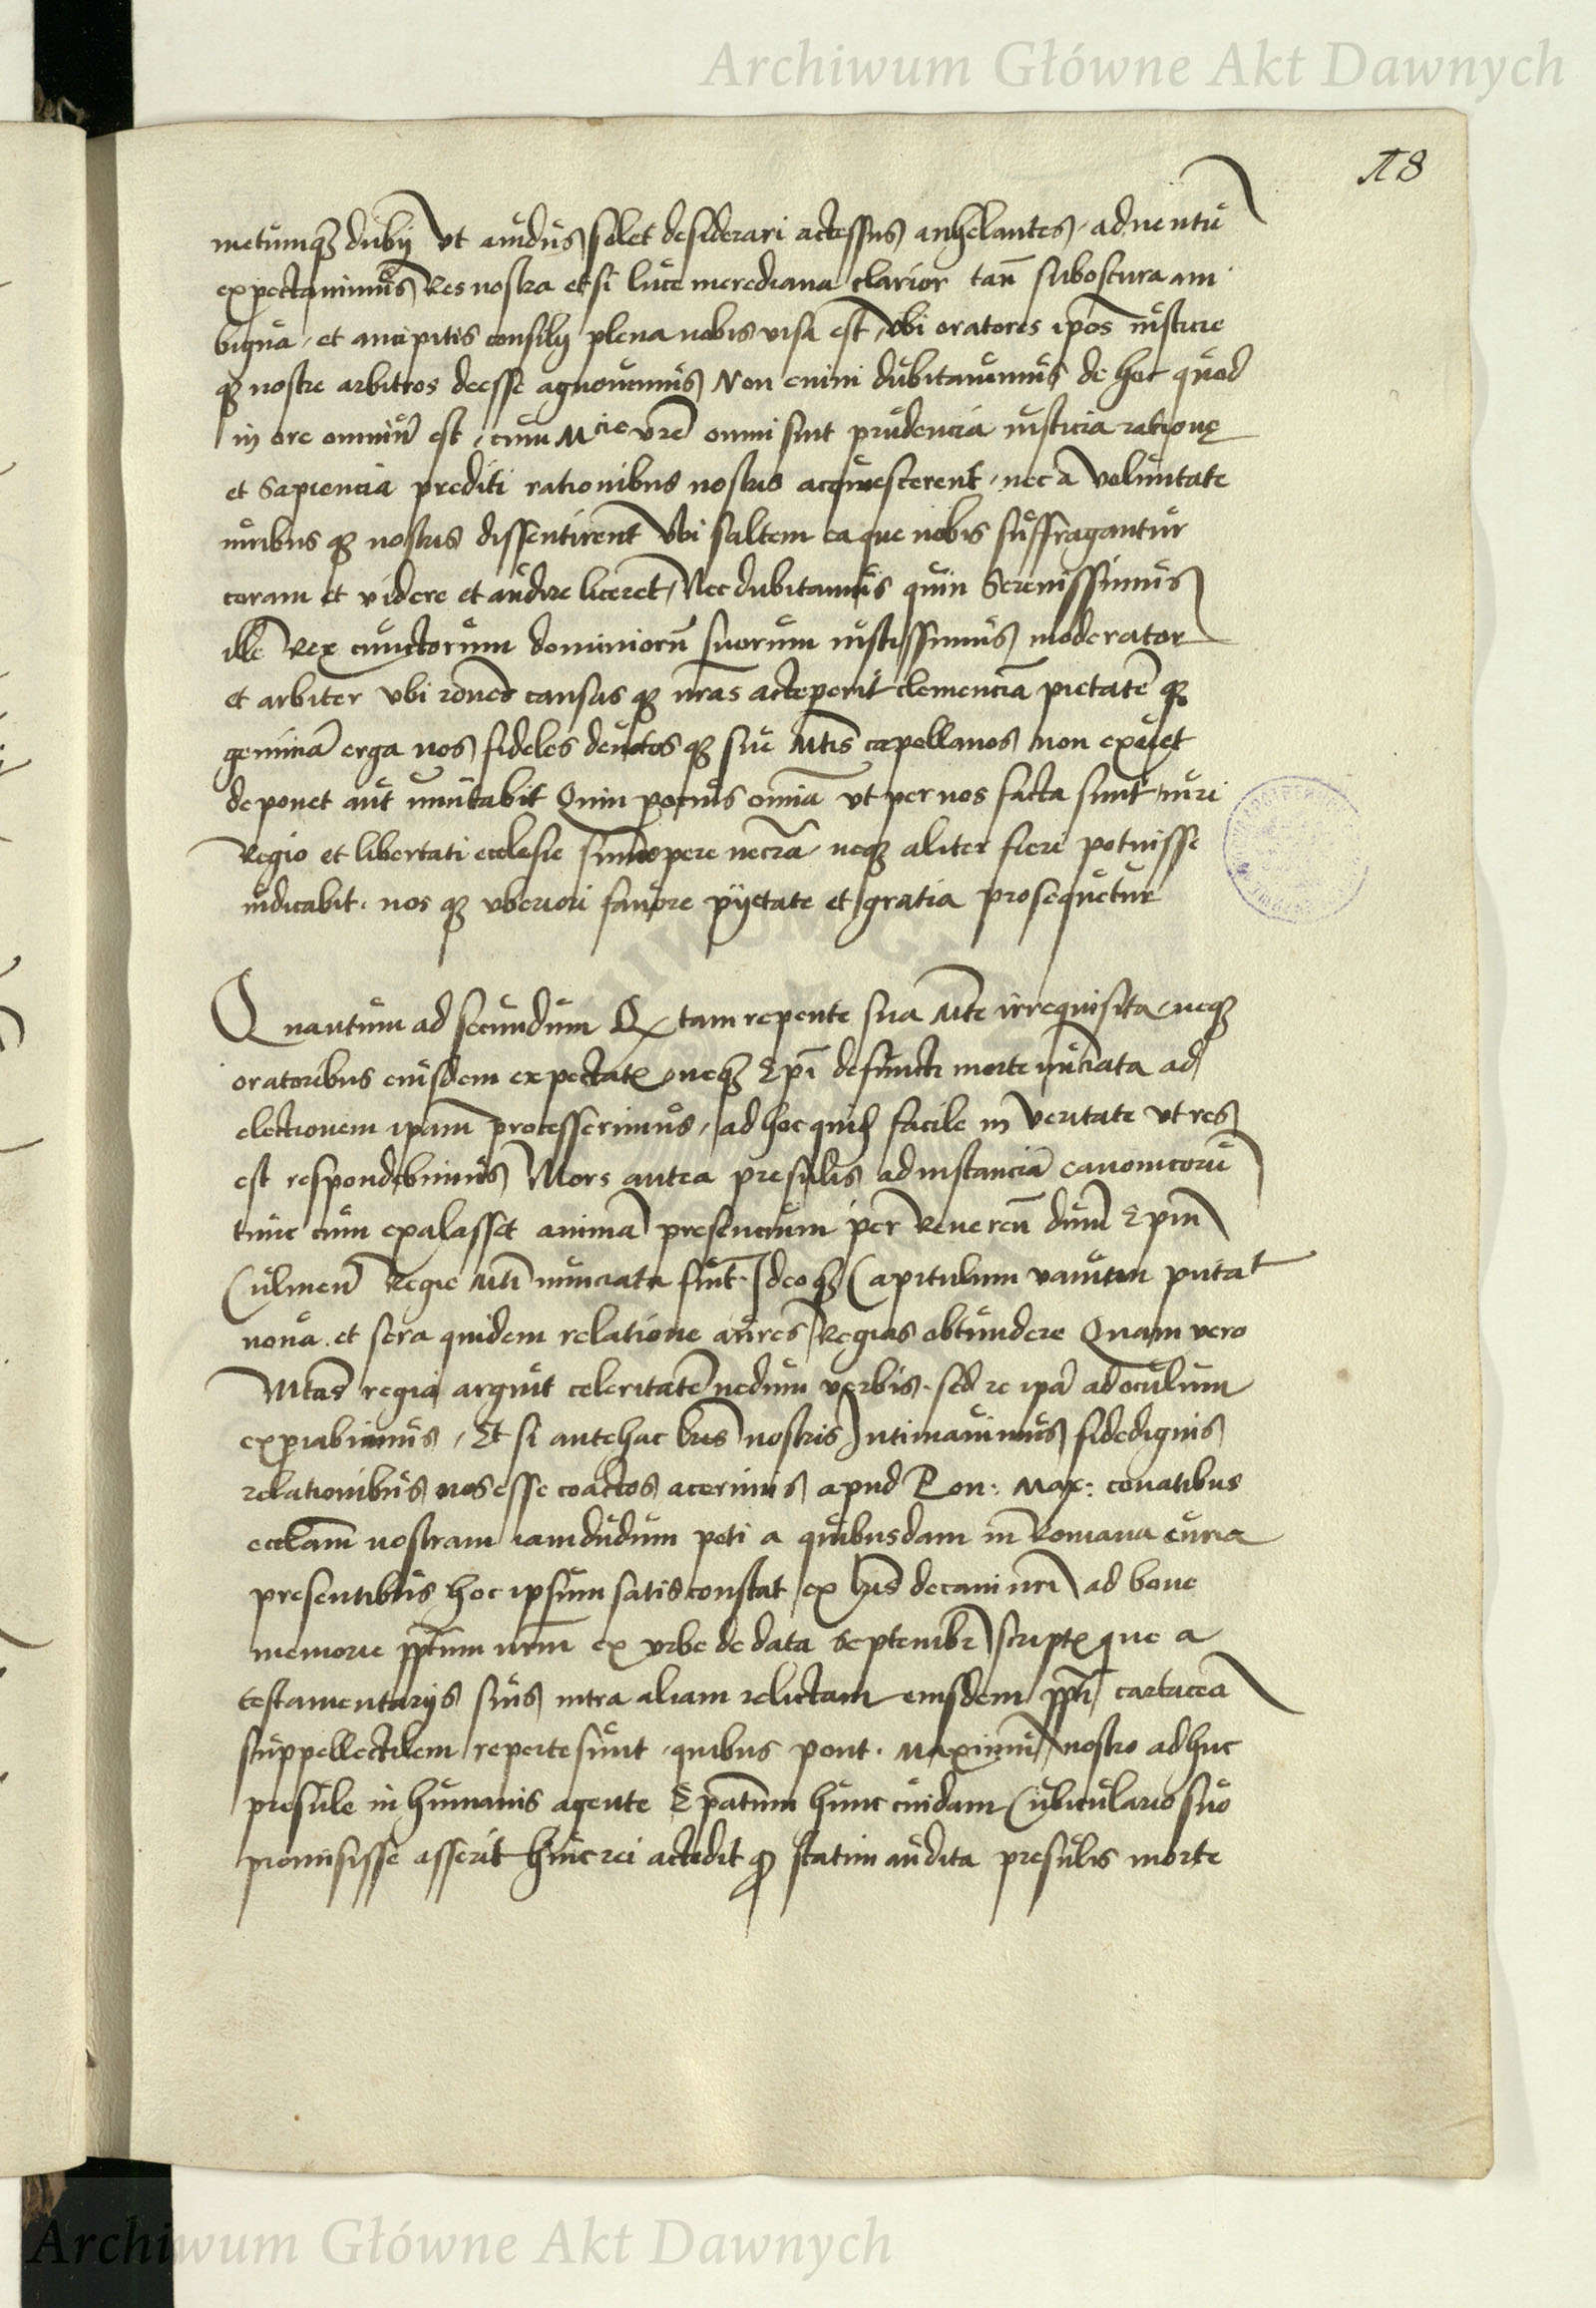 Archiwum Główne Akt Dawnych
18
metumqȝ dubij Vt auidus solet desiderari accessus anhelantes, aduentū
expectauimus Res nostra etsi luce merediana clarior tañ suboscura am
bigua, et ancipitis consilij plena nobis visa est, vbi oratores ip̄os iusticie
qȝ nostre arbitros deesse agnouimus Non enim dubitauimus de hoc quod
in ore omniū est, cum Mcie vrē omni sint prudencia iusticia ratione
et Sapiencia prediti rationibus nostris acquiescerent, nec a voluntate
iuribus qȝ nostris dissentirent Vbi saltem ea que nobis suffragantur
coram et videre et audire liceret, Nec dubitamus quin Serenissimus
ille Rex cunctorum dominiorū suorum iustissimus moderator
et arbiter vbi rōnes causas qȝ nr̄as acceperit clemenciā pietatē qȝ
geminā erga nos fideles deuotos qȝ sue Mtis capellanos non exuet
deponet aut imutabit Quin pocius omīa vt per nos facta sunt iuri
Regio et libertati ecclesie summopere necr̄a neqȝ aliter fieri potuisse
iudicabit. nos qȝ vberiori fauore pijetate et gratia prosequetur
Quantum ad secundum Qȝ tam repente sua Mte irrequisita neqȝ
oratoribus eiusdem expectatꝭ neqȝ Ep̄i defuncti morte nūciata ad
electionem ipam̄ processerimus, ad hoc quidē facile in veritate vt res
est respondebimus Mors antea presulis ad instanciā Canonicorū
tunc cum expalasset animā presencium per Reueren̄ dūm Ep̄m
Culmen̄ Regie Mti nunciata fuit. Ideoqȝ Capitulum vanum putat
noua et sera quidem relatione aures Regias obtundere Quam vero
Mtas regia arguit celeritatē nedum verbis. sed re ipā ad oculum
exp̱abimus, Et si antehac lrīs nostris Intimauimus fidedignis
relationibus nos esse coactos acerimis apud Pon: Max: conatibus
ecclam̄ nostram iamdudum peti a quibusdam in Romana curia
presentibus hoc ipsum satis constat ex lrīs decani nrī ad bone
memorie pp̄tum nrm̄ ex vrbe de data Septembr̄ scriptꝭ que a
testamentarijs suis intra aliam relictam eiusdem pp̄ti cartaceā
suppellectilem reperte sunt, quibus pont. Maximū nostro adhuc
presule in humanis agente Ep̄atum hunc cuidam Cubiculario suo
promisisse asserit huic rei accedit qꝫ statim audita presulis morte
Archiwum Główne Akt Dawnych